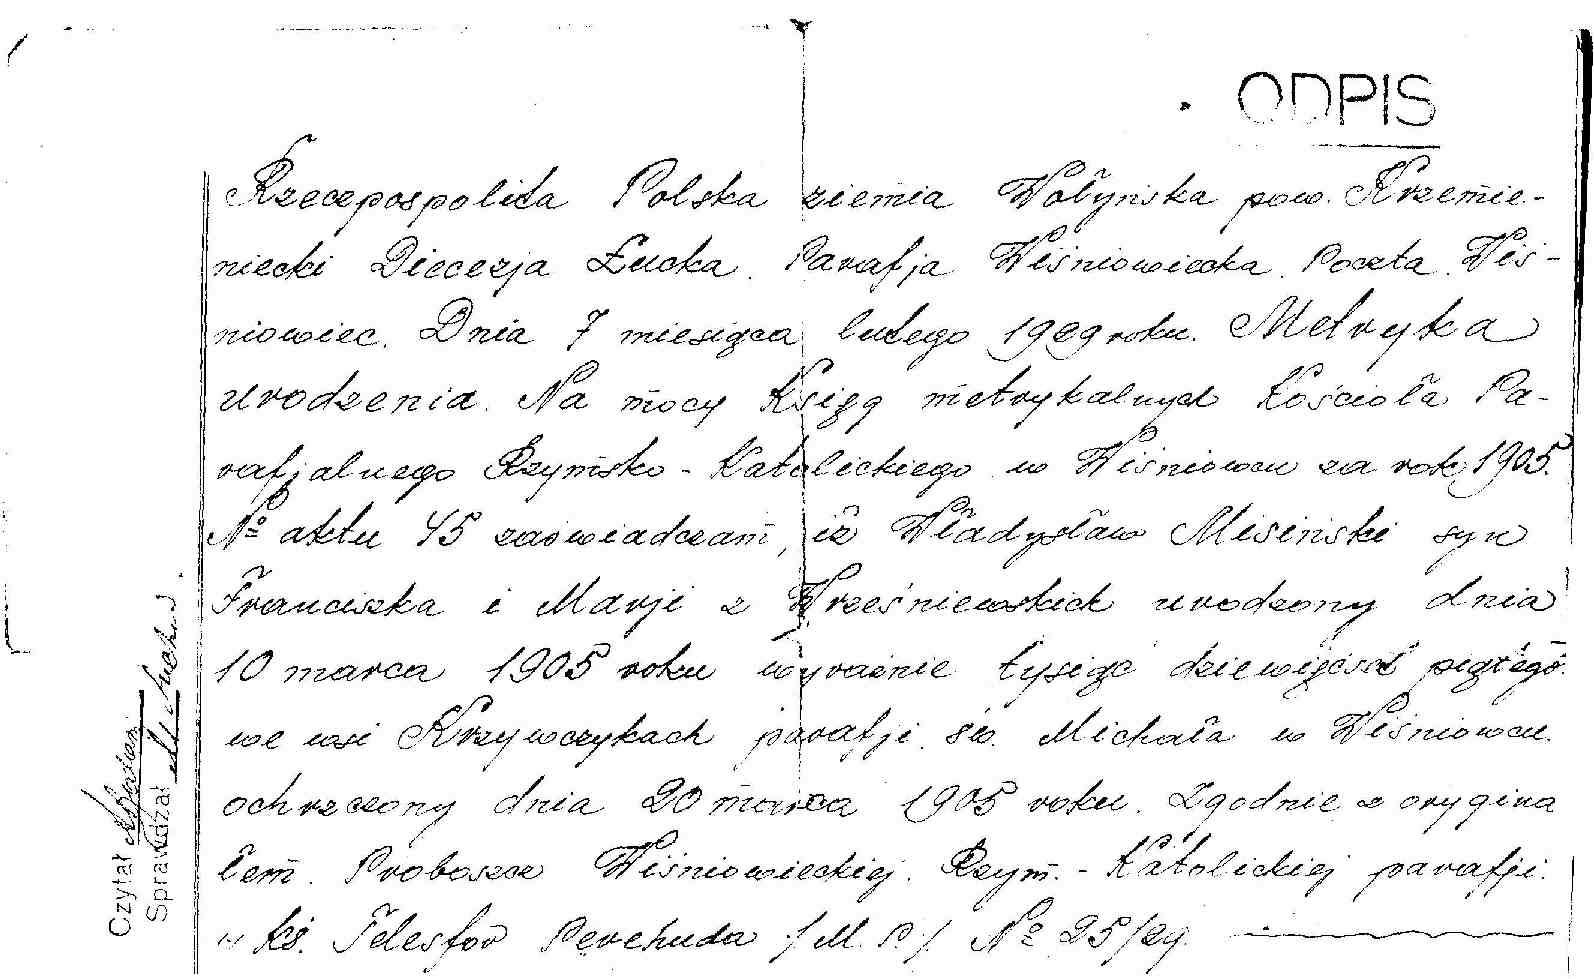 ODPIS
Rzeczpospolita Polska ziemia Wołyńska pow. Krzemie-
niecki Diecezja Łucka. Parafja Wiśniowiecka. Poczta Wiś-
niowiec. Dnia 7 miesiąca lutego 1929 roku. Metryka
urodzenia. Na mocy Ksiąg metrykalnych Kościoła Pa-
rafjalnego Rzymsko-Katolickiego w Wiśniowcu za rok 1905.
№ aktu 45 zaświadczam, iż Władysław Misiński syn
Franciszka i Marji z Wrześniewskich urodzony dnia
10 marca 1905 roku wyraźnie tysiąc dziewięćset piątego
we wsi Krzywczykach parafji św. Michała w Wiśniowcu.
ochrzczony dnia 20 marca 1905 roku. Zgodnie z orygina
łem. Proboszcz Wiśniowieckiej. Rzym.-Katolickiej parafji.
ks. Telesfor Perchuda /M.P./ № 25/29.
Czytał
Sprawdzał